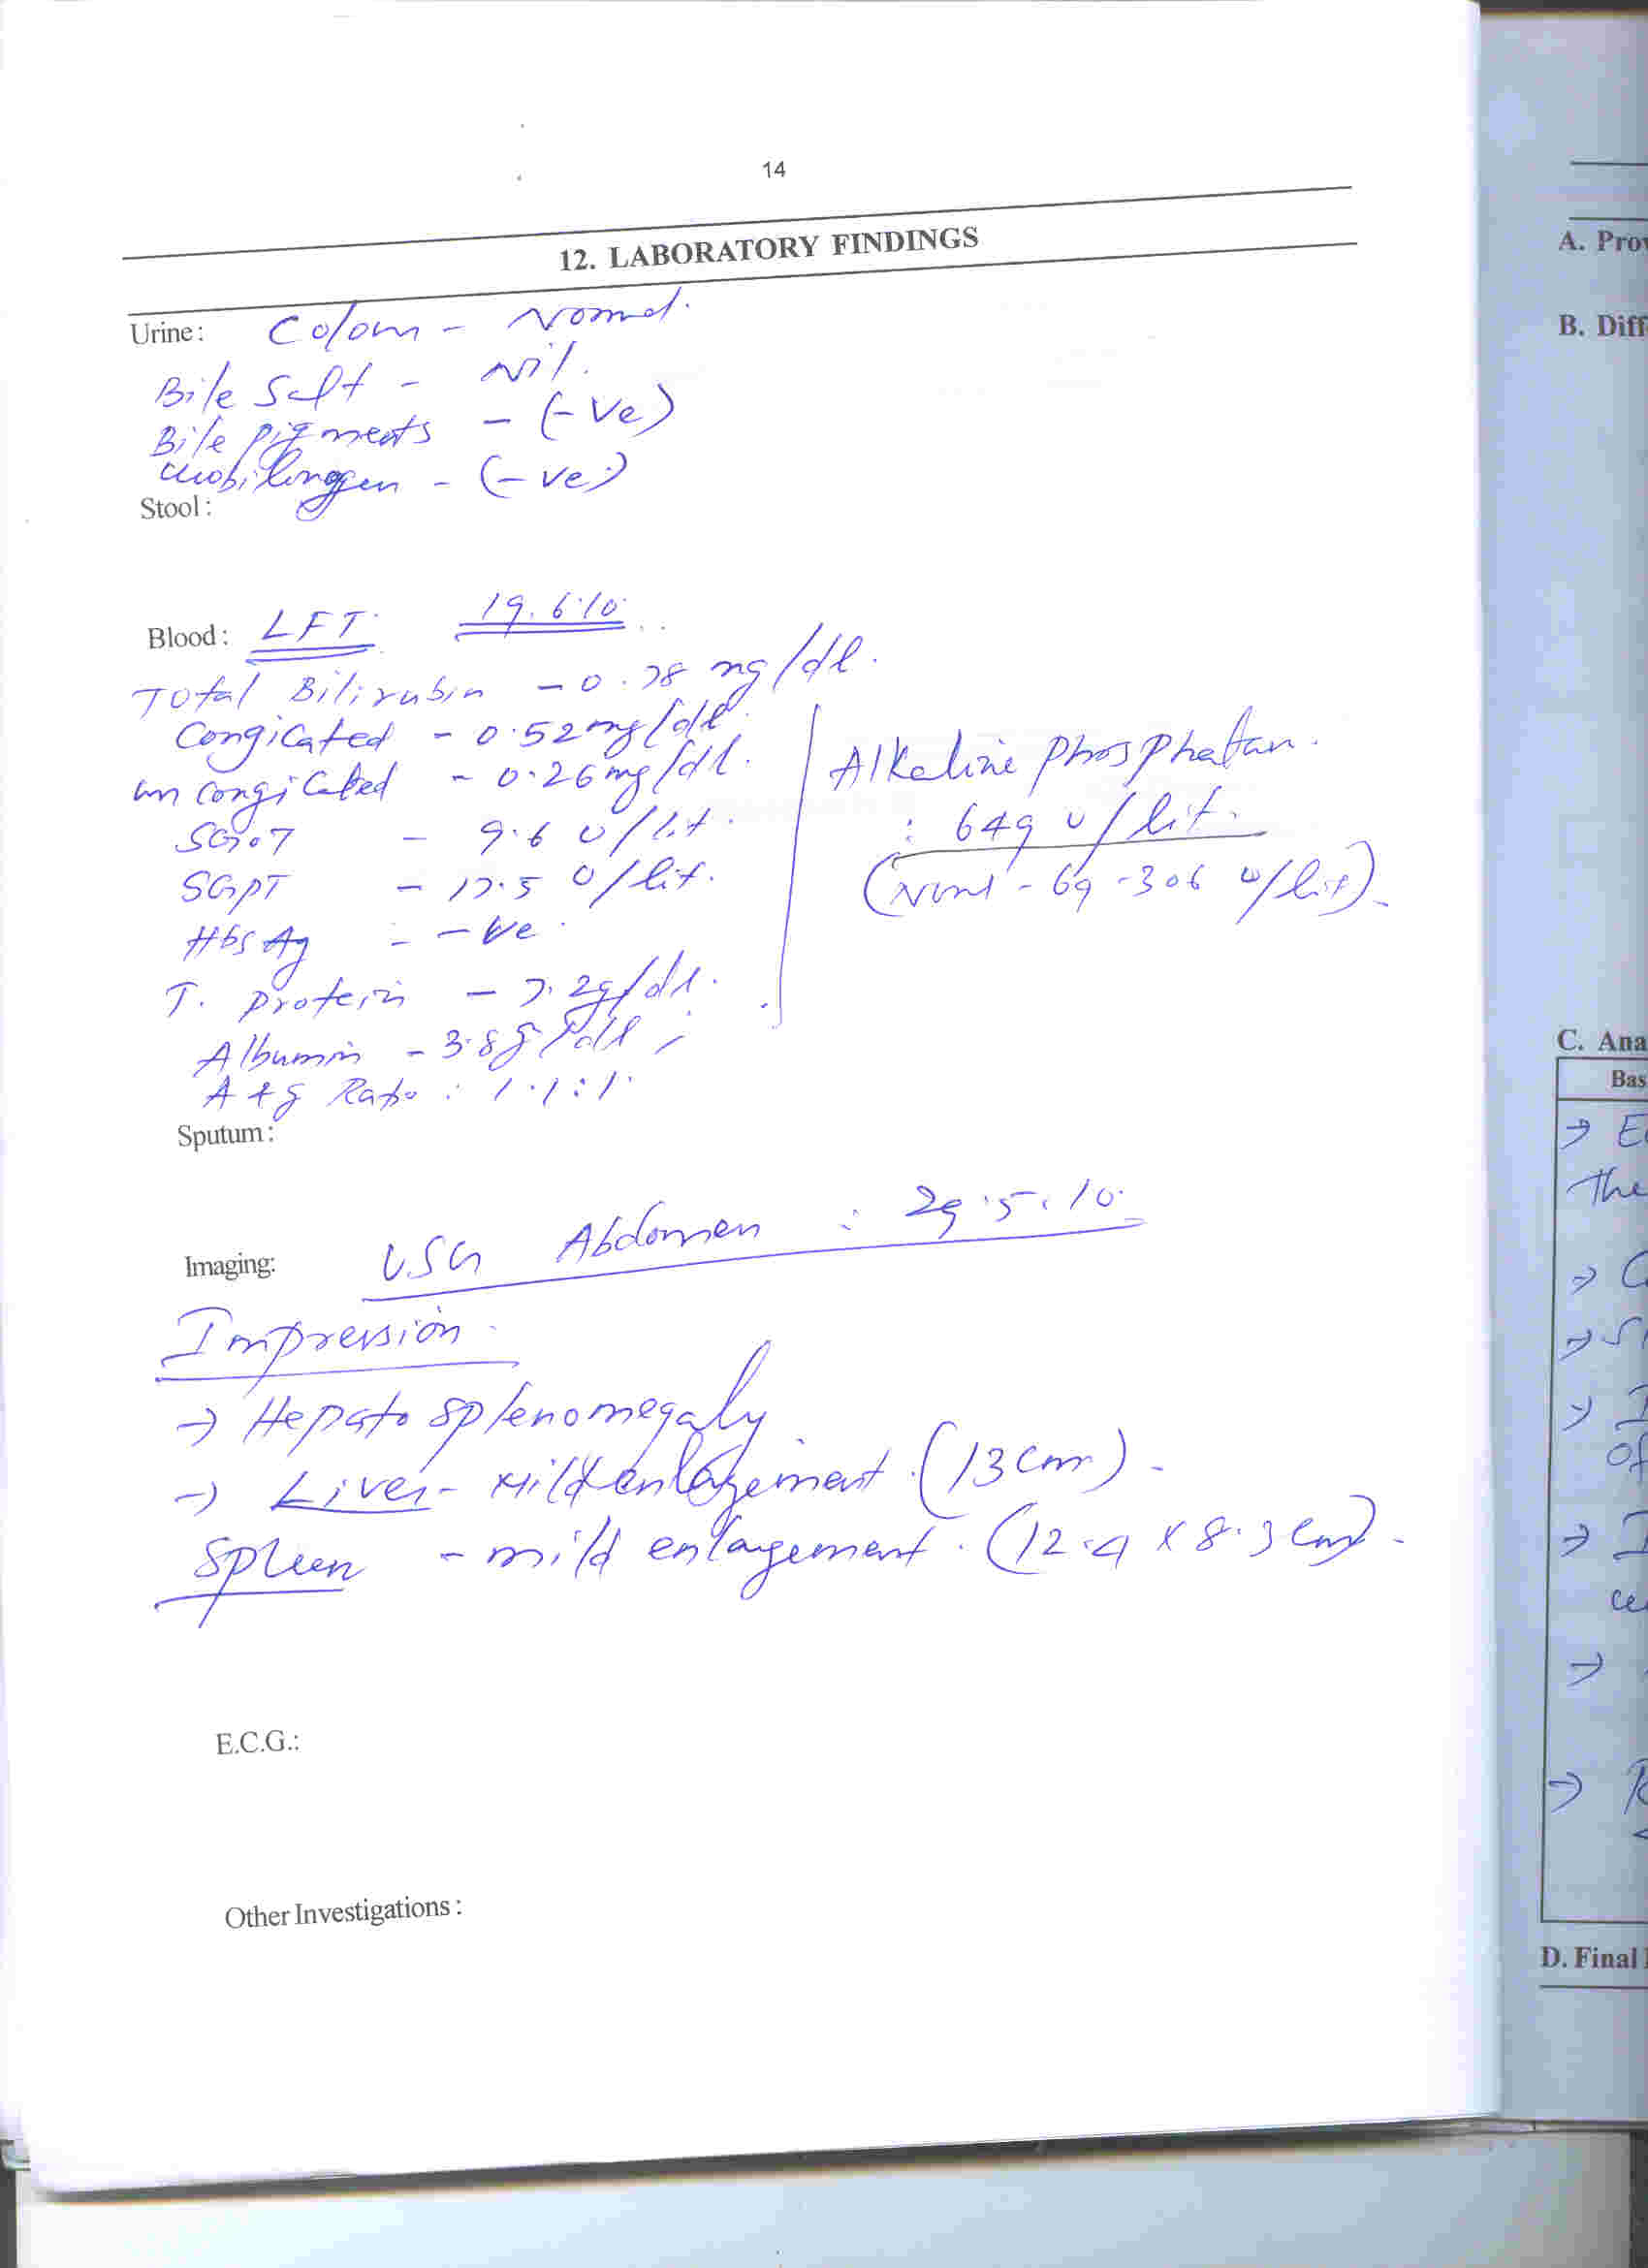 14
12. LABORATORY FINDINGS
Urine: Colour - Normal.
Bile Salt - Nil.
Bile pigments - (-ve)
urobilinogen - (-ve)
Stool:
Blood: LFT. 19.6.10.
Total Bilirubin - 0.78 mg/dl.
Congicated - 0.52 mg/dl.
un congicated - 0.26 mg/dl.
SGOT - 9.6 U/lit.
SGPT - 17.5 U/lit.
HbsAg - -ve.
T. protein - 7.2g/dl.
Albumin - 3.8g/dl;
A & g Ratio : 1.1:1.
Alkaline phosphatase.
: 649 U/lit.
(Norml - 69 - 306 U/lit).
Sputum:
Imaging: USG Abdomen : 29.5.10.
Impression.
→ Hepato splenomegaly.
→ Liver - Mild enlargement. (13 cm).
Spleen - mild enlargement. (12.4 x 8.3 cm).
E.C.G.:
Other Investigations:
A. Pro
B. Diff
C. Ana
Bas
The
of
D. Final